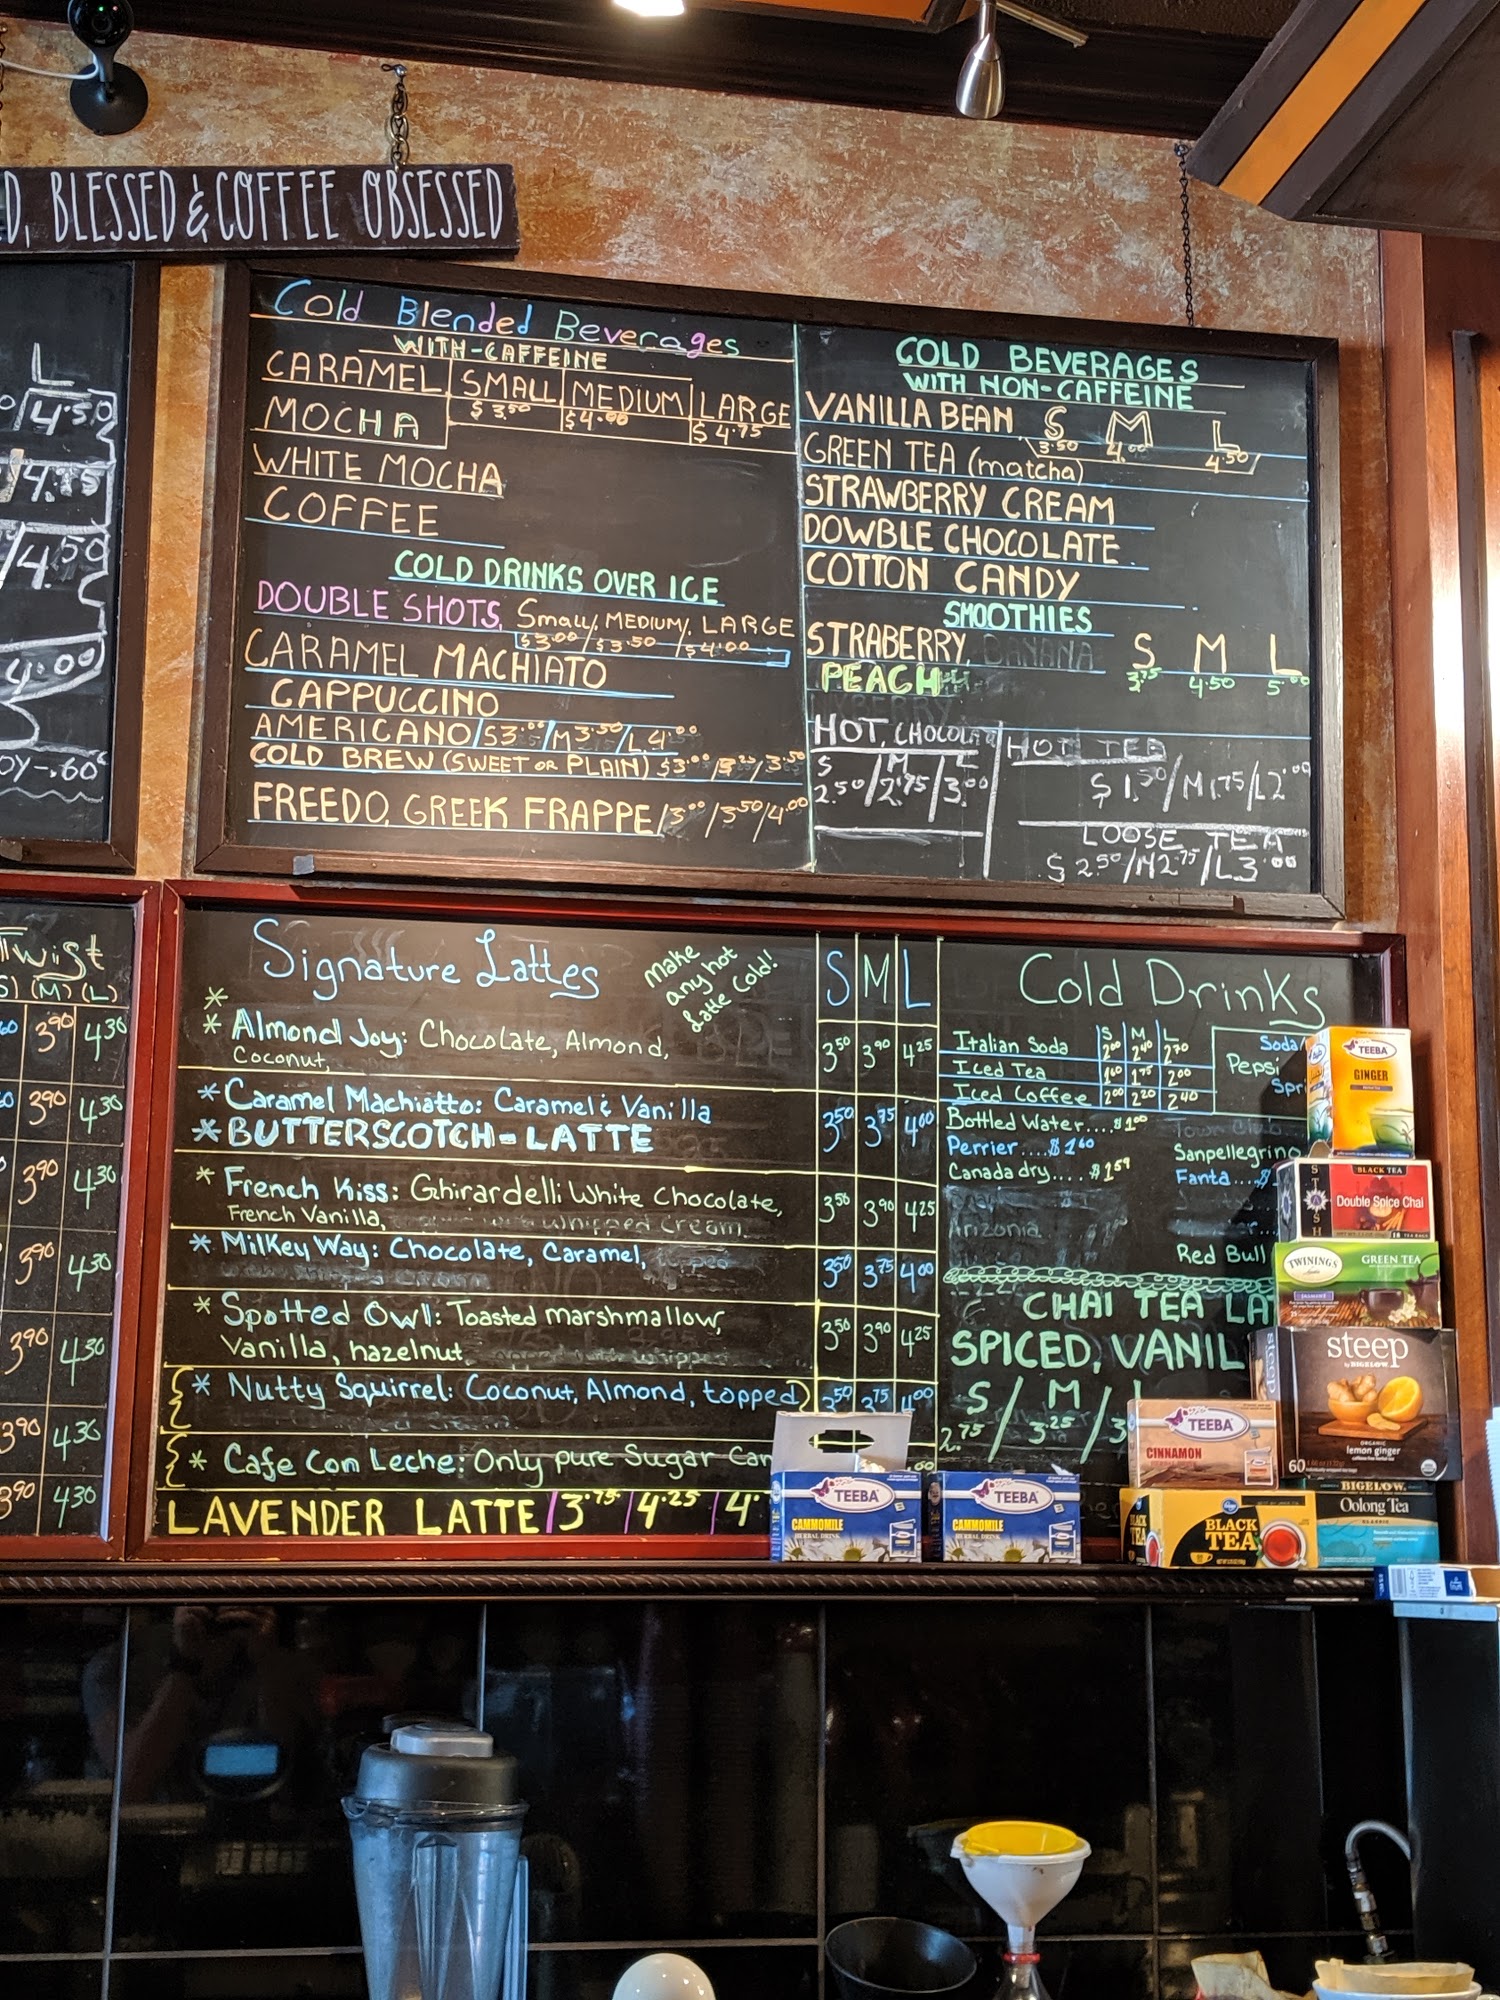 D, BLESSED & COFFEE OBSESSED
L
4.50
4.75
4.50
4.00
OY-.60¢
Cold Blended Beverages
WITH-CAFFEINE
CARAMEL SMALL MEDIUM LARGE
$3.50 $4.00 $4.75
MOCHA
WHITE MOCHA
COFFEE
COLD DRINKS OVER ICE
DOUBLE SHOTS, Small/, MEDIUM/, LARGE
$3.00/$3.50/$4.00
CARAMEL MACHIATO
CAPPUCCINO
AMERICANO/$3.00/M3.50/L4.00
COLD BREW (SWEET OR PLAIN) $3.00/3.25/3.50
FREEDO, GREEK FRAPPE/3.00/3.50/4.00
COLD BEVERAGES
WITH NON-CAFFEINE
VANILLA BEAN S M L
3.50 4.00 4.50
GREEN TEA (matcha)
STRAWBERRY CREAM
DOWBLE CHOCOLATE
COTTON CANDY
SMOOTHIES
STRABERRY, BANANA S M L
PEACH 3.75 4.50 5.00
HOT, CHOCOLATE
S M L
2.50/2.75/3.00
HOT TEE
$1.50/M1.75/L2.00
LOOSE TEA
$2.50/M2.75/L3.00
Twist
S) (M) (L)
60 3.90 4.30
3.90 4.30
3.90 4.30
3.90 4.30
3.90 4.30
3.90 4.30
3.90 4.30
Signature Lattes
Make
any hot
Latte Cold!
S M L
*
* Almond Joy: Chocolate, Almond, 3.50 3.90 4.25
Coconut,
* Caramel Machiatto: Caramel & Vanilla 3.50 3.75 4.00
* BUTTERSCOTCH-LATTE
* French Kiss: Ghirardelli White Chocolate, 3.50 3.90 4.25
French Vanilla, whipped cream
* Milkey Way: Chocolate, Caramel, topped 3.50 3.75 4.00
* Spotted Owl: Toasted marshmallow, 3.50 3.90 4.25
Vanilla, hazelnut
* Nutty Squirrel: Coconut, Almond, topped) 3.50 3.75 4.00
* Cafe Con Leche: Only pure Sugar Can
LAVENDER LATTE/3.75/4.25/4.
Cold Drinks
S M L
Italian Soda 2.00 2.40 2.70
Iced Tea 1.60 1.75 2.00
Iced Coffee 2.00 2.20 2.40
Soda/
Pepsi
Spri
Bottled Water....$1.00
Town Club
Perrier....$1.60
Sanpellegrino
Canada dry....$1.59
Fanta....$
Arizonia
Red Bull
CHAI TEA LA
SPICED, VANIL
S / M / L
2.75/3.25/3
TEEBA
GINGER
STASH
BLACK TEA
Double Spice Chai
TWININGS
GREEN TEA
JASMINE
steep
steep
by BIGELOW
ORGANIC
lemon ginger
60
TEEBA
CINNAMON
BIGELOW
Oolong Tea
CLASSIC
BLACK
TEA
BLACK
TEA
TEEBA
CAMMOMILE
HERBAL DRINK
TEEBA
CAMMOMILE
HERBAL DRINK